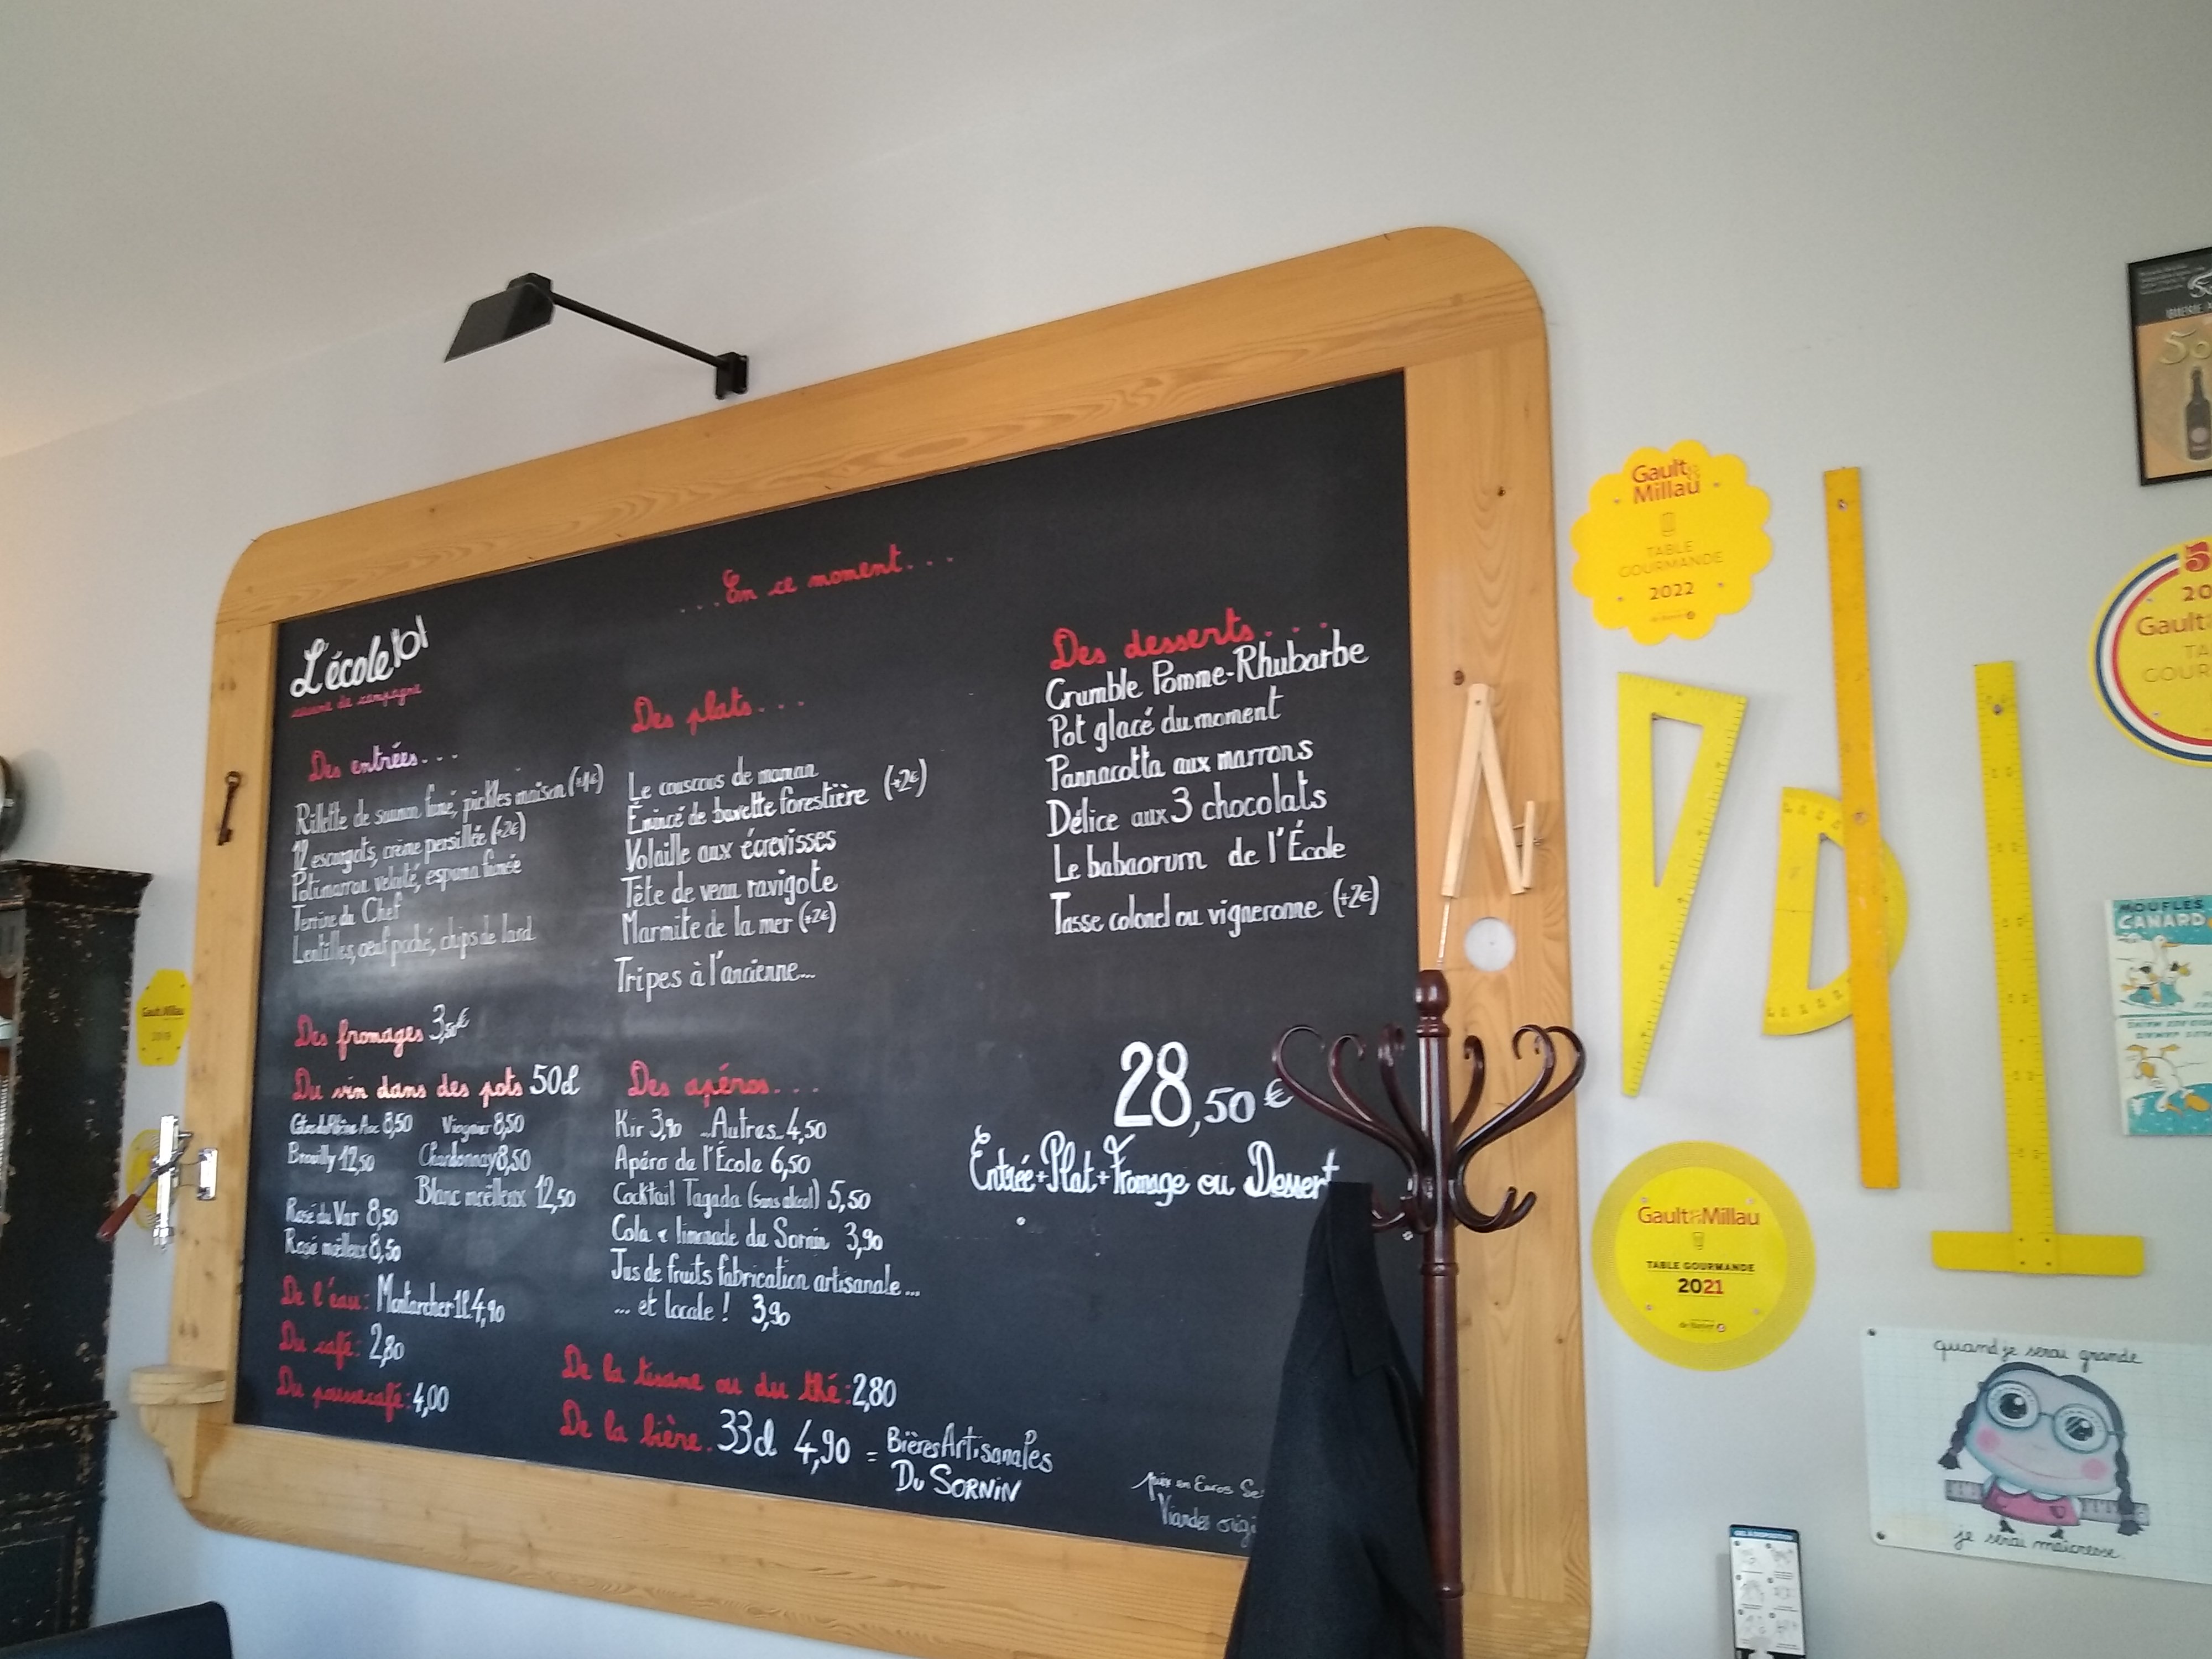 ...En ce moment...
L'école
cuisine de campagne
Des entrées...
Rillette de saumon fumé, pickles maison (+1€)
12 escargots, crème persillée (+2€)
Potimarron velouté, espuma fumée
Terrine du Chef
Lentilles, oeuf poché, chips de lard
Des fromages 3,50€
Du vin dans des pots 50cl
Côtes du Rhône Aoc 8,50 Viognier 8,50
Brouilly 12,50 Chardonnay 8,50
Blanc moëlleux 12,50
Rosé du Var 8,50
Rosé moëlleux 8,50
De l'eau: Montarcher 1l 4,90
Du café: 2,80
Du poussecafé: 4,00
Des plats...
Le couscous de maman
Émincé de bavette forestière (+2€)
Volaille aux écrevisses
Tête de veau ravigote
Marmite de la mer (+2€)
Tripes à l'ancienne...
Des apéros...
Kir 3,90 ..Autres.. 4,50
Apéro de l'École 6,50
Cocktail Tagada (sans alcool) 5,50
Cola & limonade du Sornin 3,90
Jus de fruits fabrication artisanale...
... et locale ! 3,90
De la tisane ou du thé: 2,80
De la bière. 33cl 4,90 = Bières Artisanales
Du SORNIN
Des desserts...
Crumble Pomme-Rhubarbe
Pot glacé du moment
Pannacotta aux marrons
Délice aux 3 chocolats
Le babaorum de l'École
Tasse colonel ou vigneronne (+2€)
28,50 €
Entrée+Plat+Fromage ou Dessert
prix en Euros
Viandes
Gault&Millau
TABLE
GOURMANDE
2022
Gault&Millau
TABLE GOURMANDE
2021
Gault&Millau
Gault
MOUFLES
CANARD
quand je serai grande
je serai maîcresse
GEL À DISPOSITION